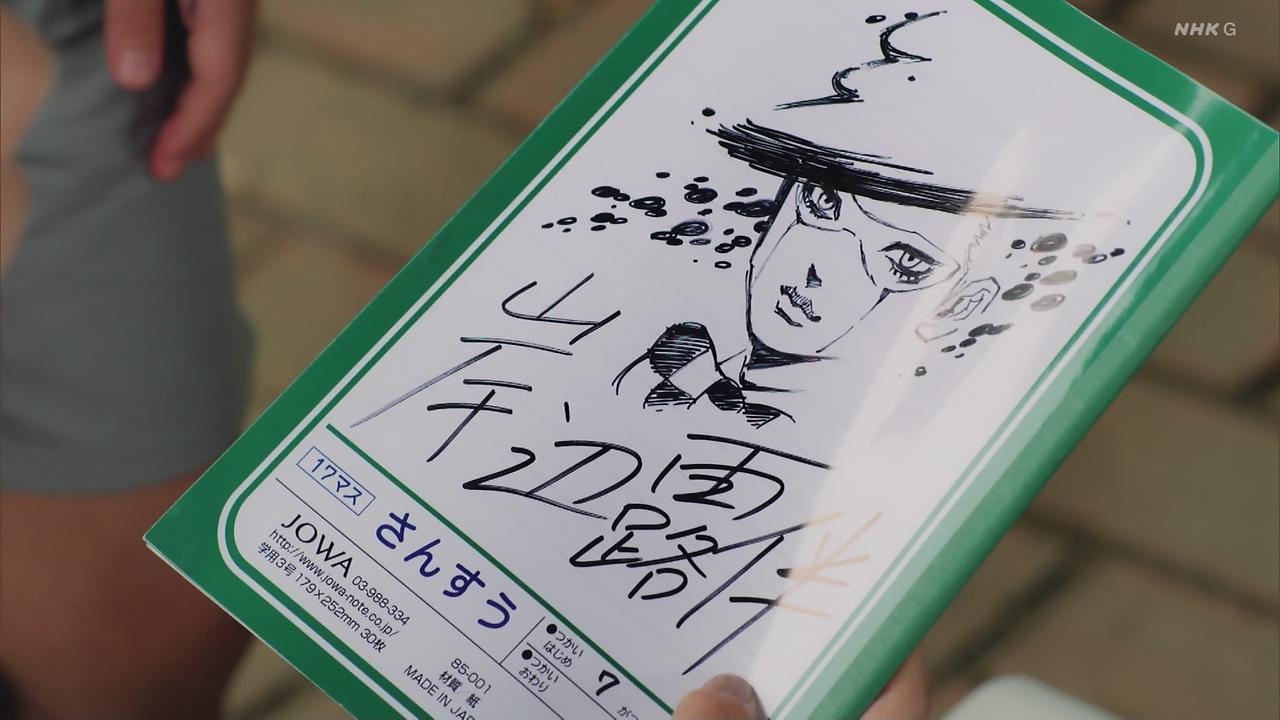 NHK G
岸辺露伴
17マス
さんすう
JOWA 03-988-334
http://www.jowa-note.co.jp/
学用3号 179×252mm 30枚
85-001
材質 紙
MADE IN JAP
●つかい
はじめ
●つかい
おわり
7
がつ